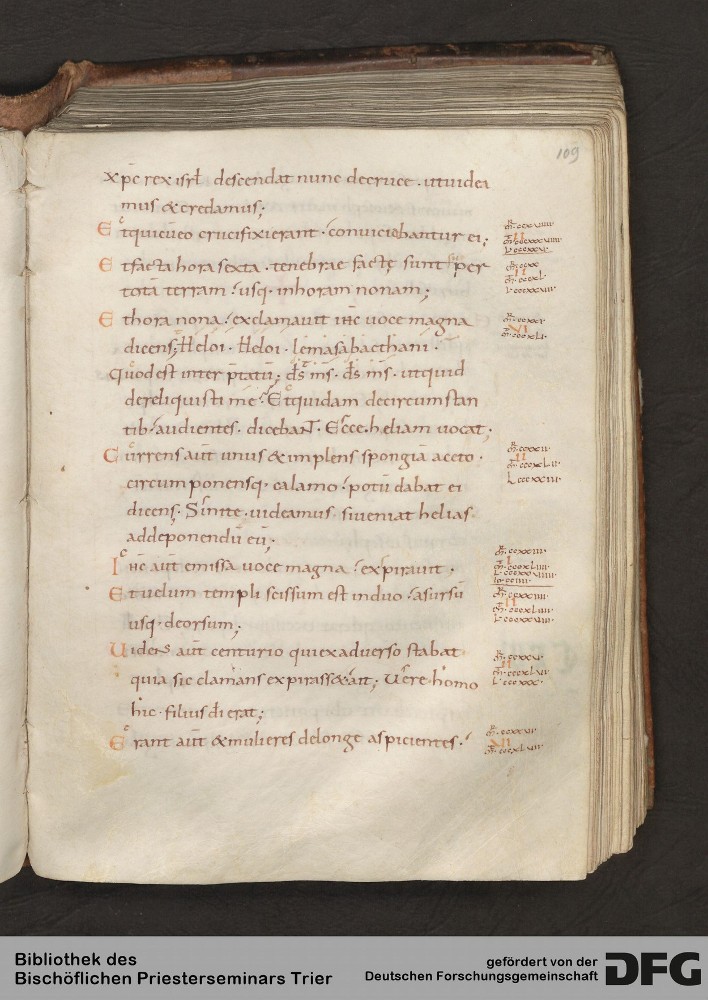 109
xp̄c rex isrł descendat nunc decruce · utuidea
mus & credamus;
Etquicūeo crucifixierant · conuiciabantur ei;
Etfacta hora sexta · tenebrae factę sunt per
totā terram · usq· inhoram nonam;
Ethora nona · exclamauit ihc uoce magna
dicens; Heloi · Heloi · lemasabacthani ·
Quodest inter p̄tatū; d̄s m̄s · d̄s m̄s · utquid
dereliquisti me · Etquidam decircumstan
tib· audientes · dicebaNT · Ecce · heliam uocat;
Currens aūt unus & implens spongiā aceto ·
circumponensq· calamo · potū dabat ei
dicens; Sinite · uideamus · siueniat helias
addeponendū eū;
Ihc aūt emissa uoce magna · expirauit ·
Et uelum templi scissum est induo · asursū
usq· deorsum;
Uidens aūt centurio quiexaduerso stabat
quia sic clamans expirass& ait; Uere homo
hic · filius dī erat;
Erant aūt & mulieres delonge aspicientes ·
Bibliothek des
Bischöflichen Priesterseminars Trier
gefördert von der
Deutschen Forschungsgemeinschaft
DFG